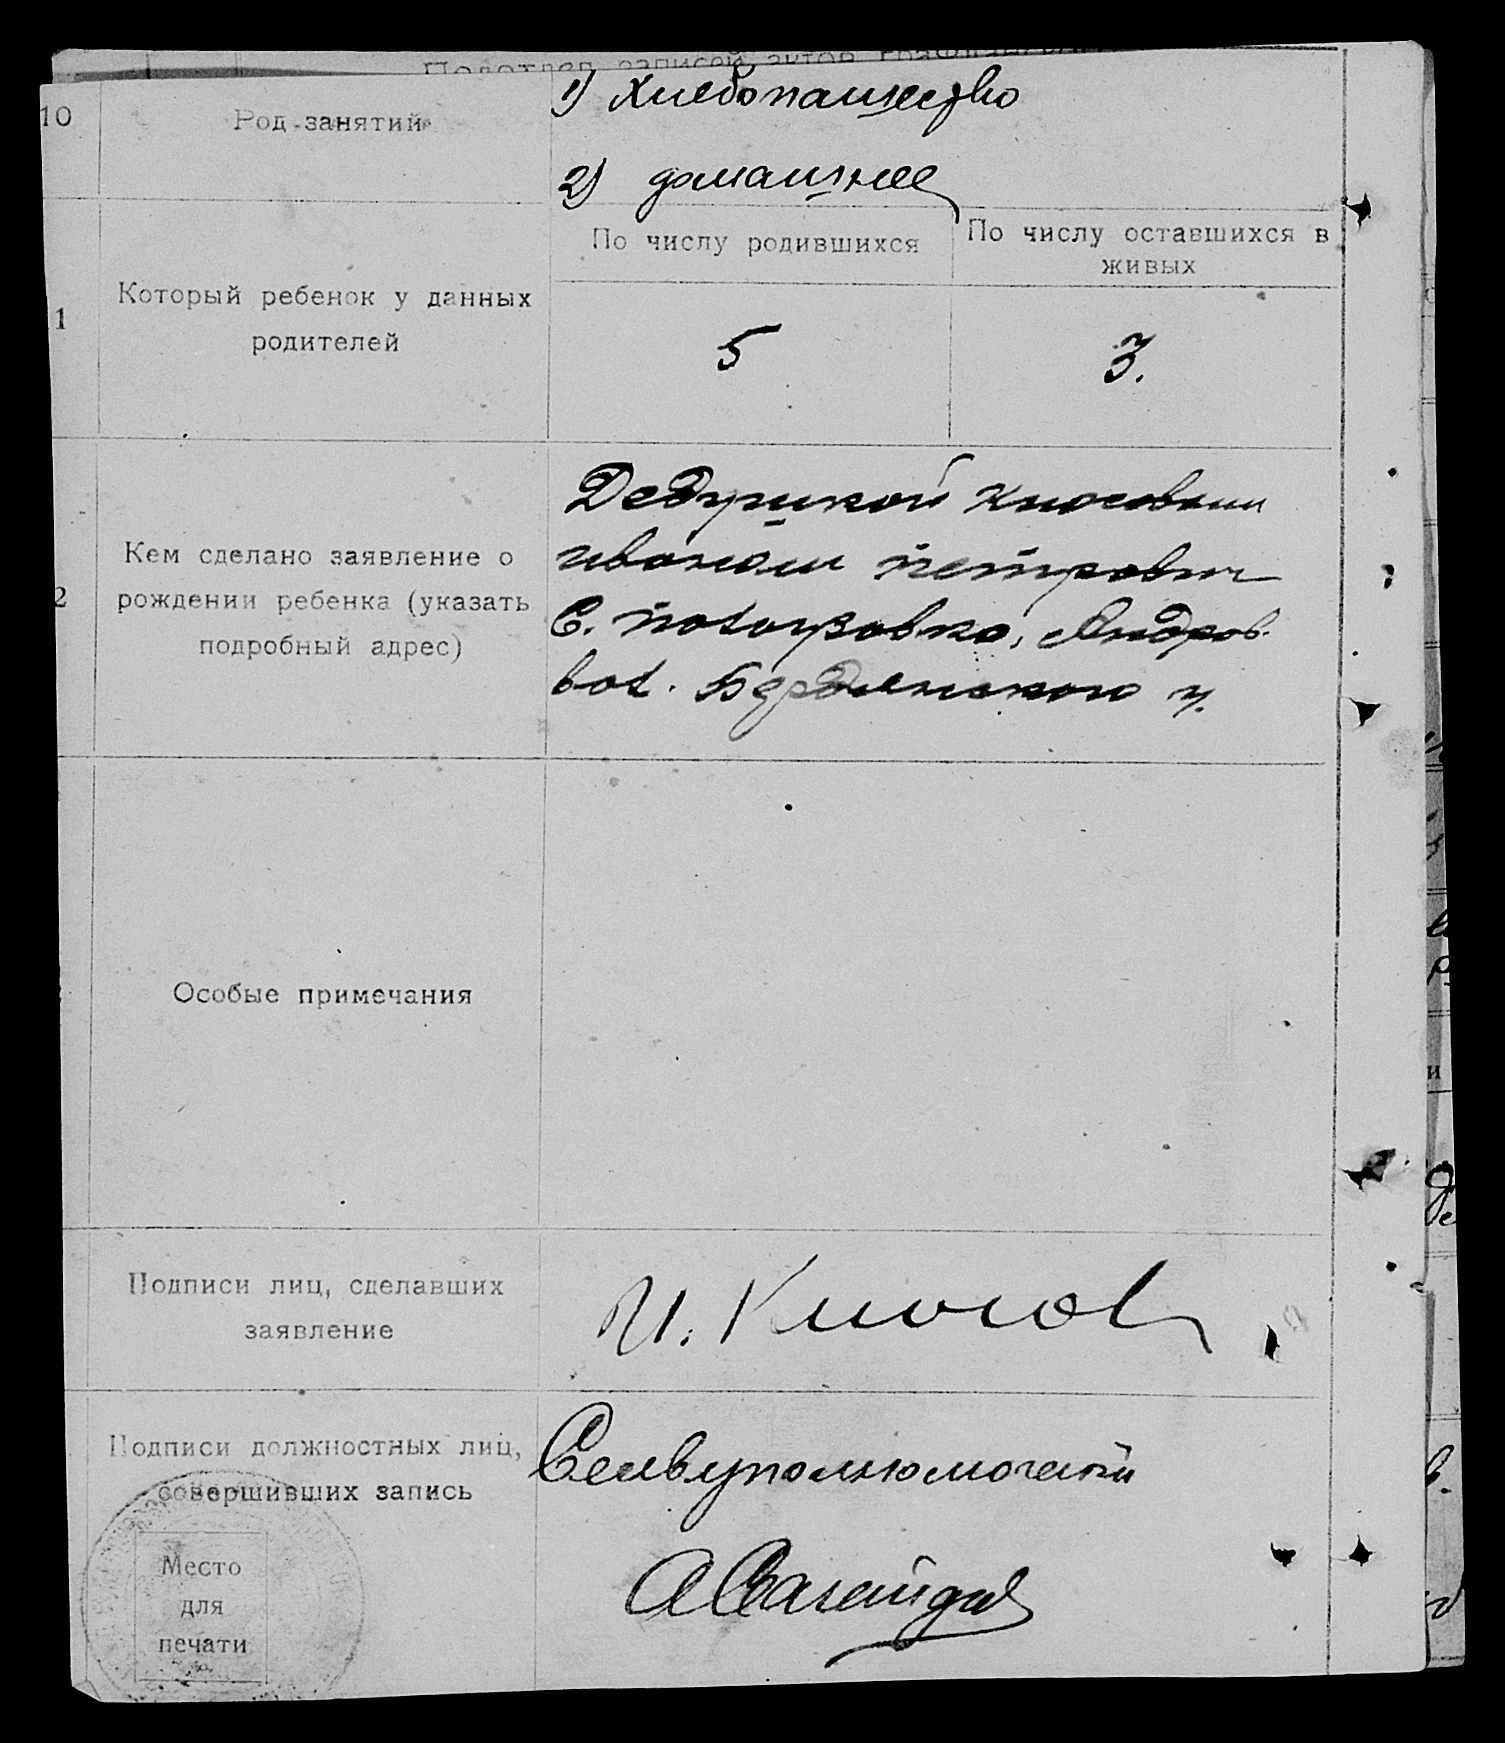 Подотдел записей актов гражданского
10
Род занятий
1) Хлебопашество
2) домашнее
По числу родившихся
По числу оставшихся в
живых
1
Который ребенок у данных
родителей
5
3.
2
Кем сделано заявление о
рождении ребенка (указать
подробный адрес)
Дедушкой
Иваном Петрович
С. Андров.
вол. Бердянского у.
Особые примечания
Подписи лиц, сделавших
заявление
И.
Подписи должностных лиц,
совершивших запись
Место
для
печати